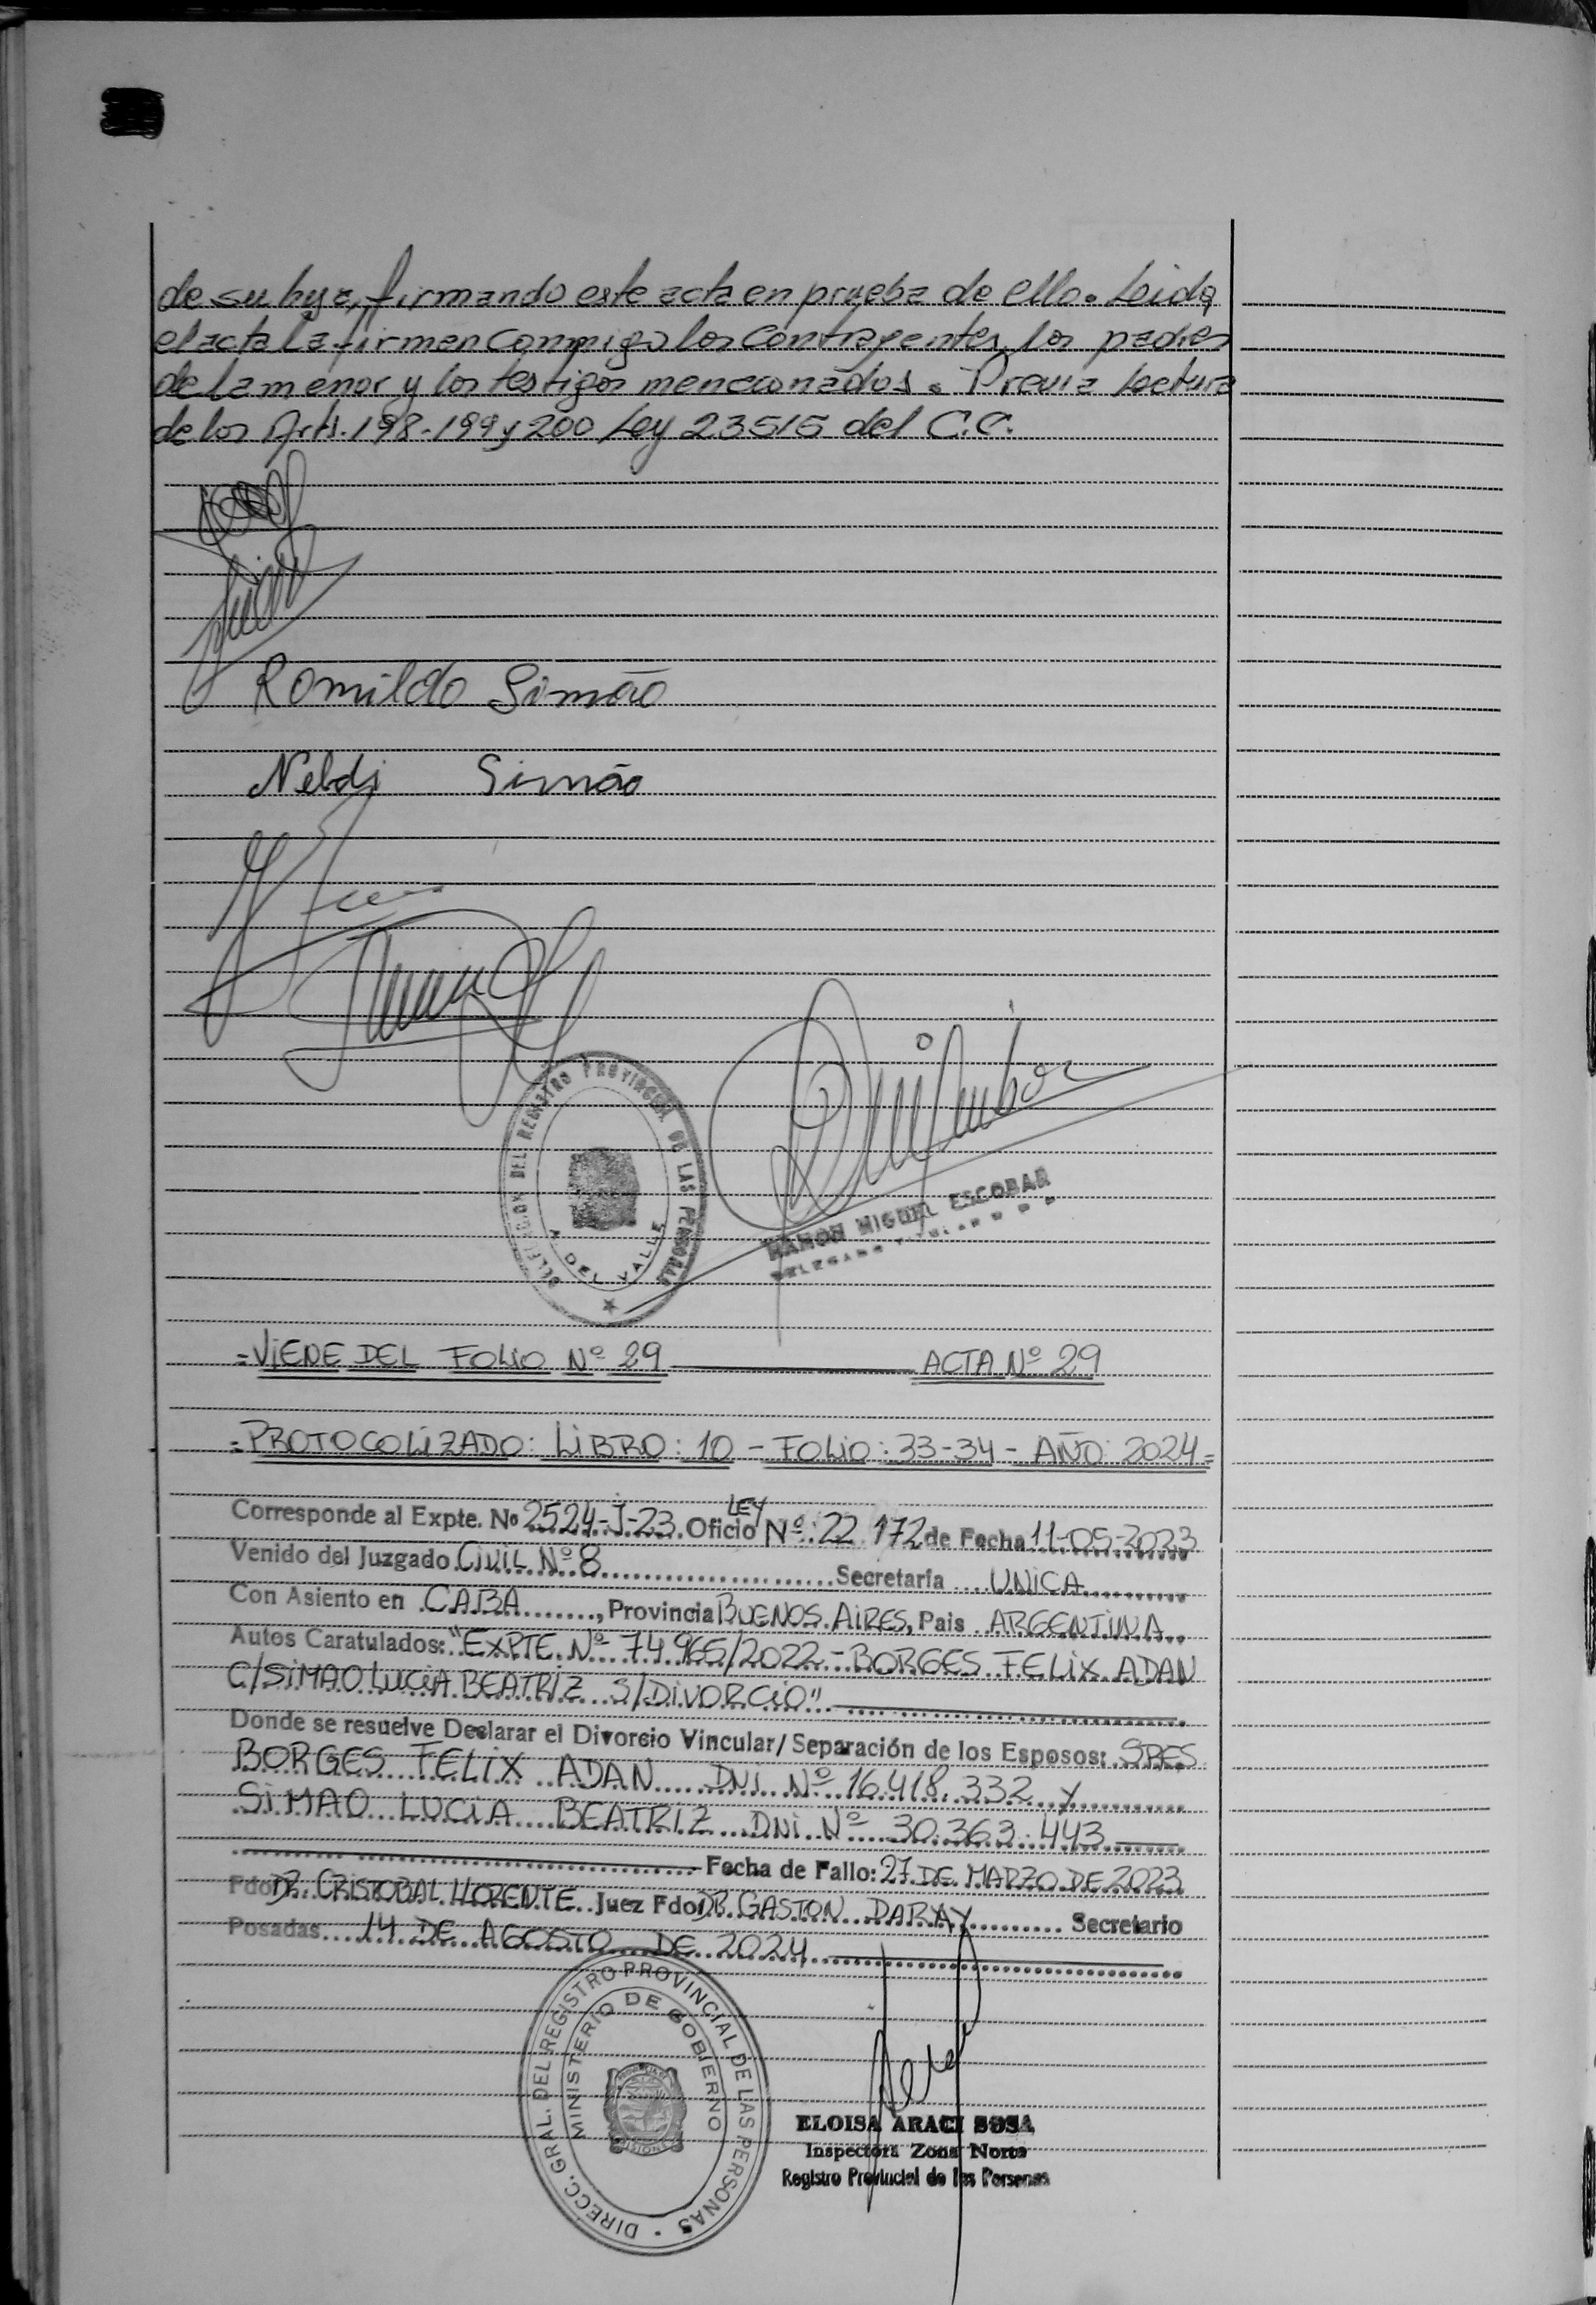 de su hija, firmando este acta en prueba de ello. Leida
el acta la firman conmigo los contrayentes, los padres
de la menor y los testigos mencionados. Previa lectura
de los Arts. 198-199 y 200 Ley 23515 del C.C.
Romildo Simão
Neldi Simão
DELEGACION DEL REGISTRO PROVINCIAL DE LAS PERSONAS
A. DEL VALLE
RAMON MIGUEL ESCOBAR
=VIENE DEL FOLIO Nº 29 ACTA Nº 29
=PROTOCOLIZADO: LIBRO: 10 - FOLIO: 33-34 - AÑO 2024=
Corresponde al Expte. Nº 2524-J-23. Oficio LEY Nº: 22 172 de Fecha 11-05-2023
Venido del Juzgado CIVIL Nº 8 Secretaría UNICA
Con Asiento en CABA, Provincia BUENOS AIRES, Pais ARGENTINA
Autos Caratulados: "EXPTE. Nº 74 965/2022 - BORGES FELIX ADAN
C/SIMAO LUCIA BEATRIZ S/DIVORCIO"
Donde se resuelve Declarar el Divorcio Vincular/Separación de los Esposos: SRES
BORGES FELIX ADAN DNI Nº 16.418.332 Y
SIMAO LUCIA BEATRIZ DNI Nº 30.363.443
Fecha de Fallo: 27 DE MARZO DE 2023
Fdo. DR. CRISTOBAL LLORENTE Juez Fdo. DR. GASTON DARAY Secretario
Posadas 14 DE AGOSTO DE 2024
DIRECC. GRAL. DEL REGISTRO PROVINCIAL DE LAS PERSONAS
MINISTERIO DE GOBIERNO
MISIONES
ELOISA ARACI SOSA
Inspectora Zona Norte
Registro Provincial de las Personas